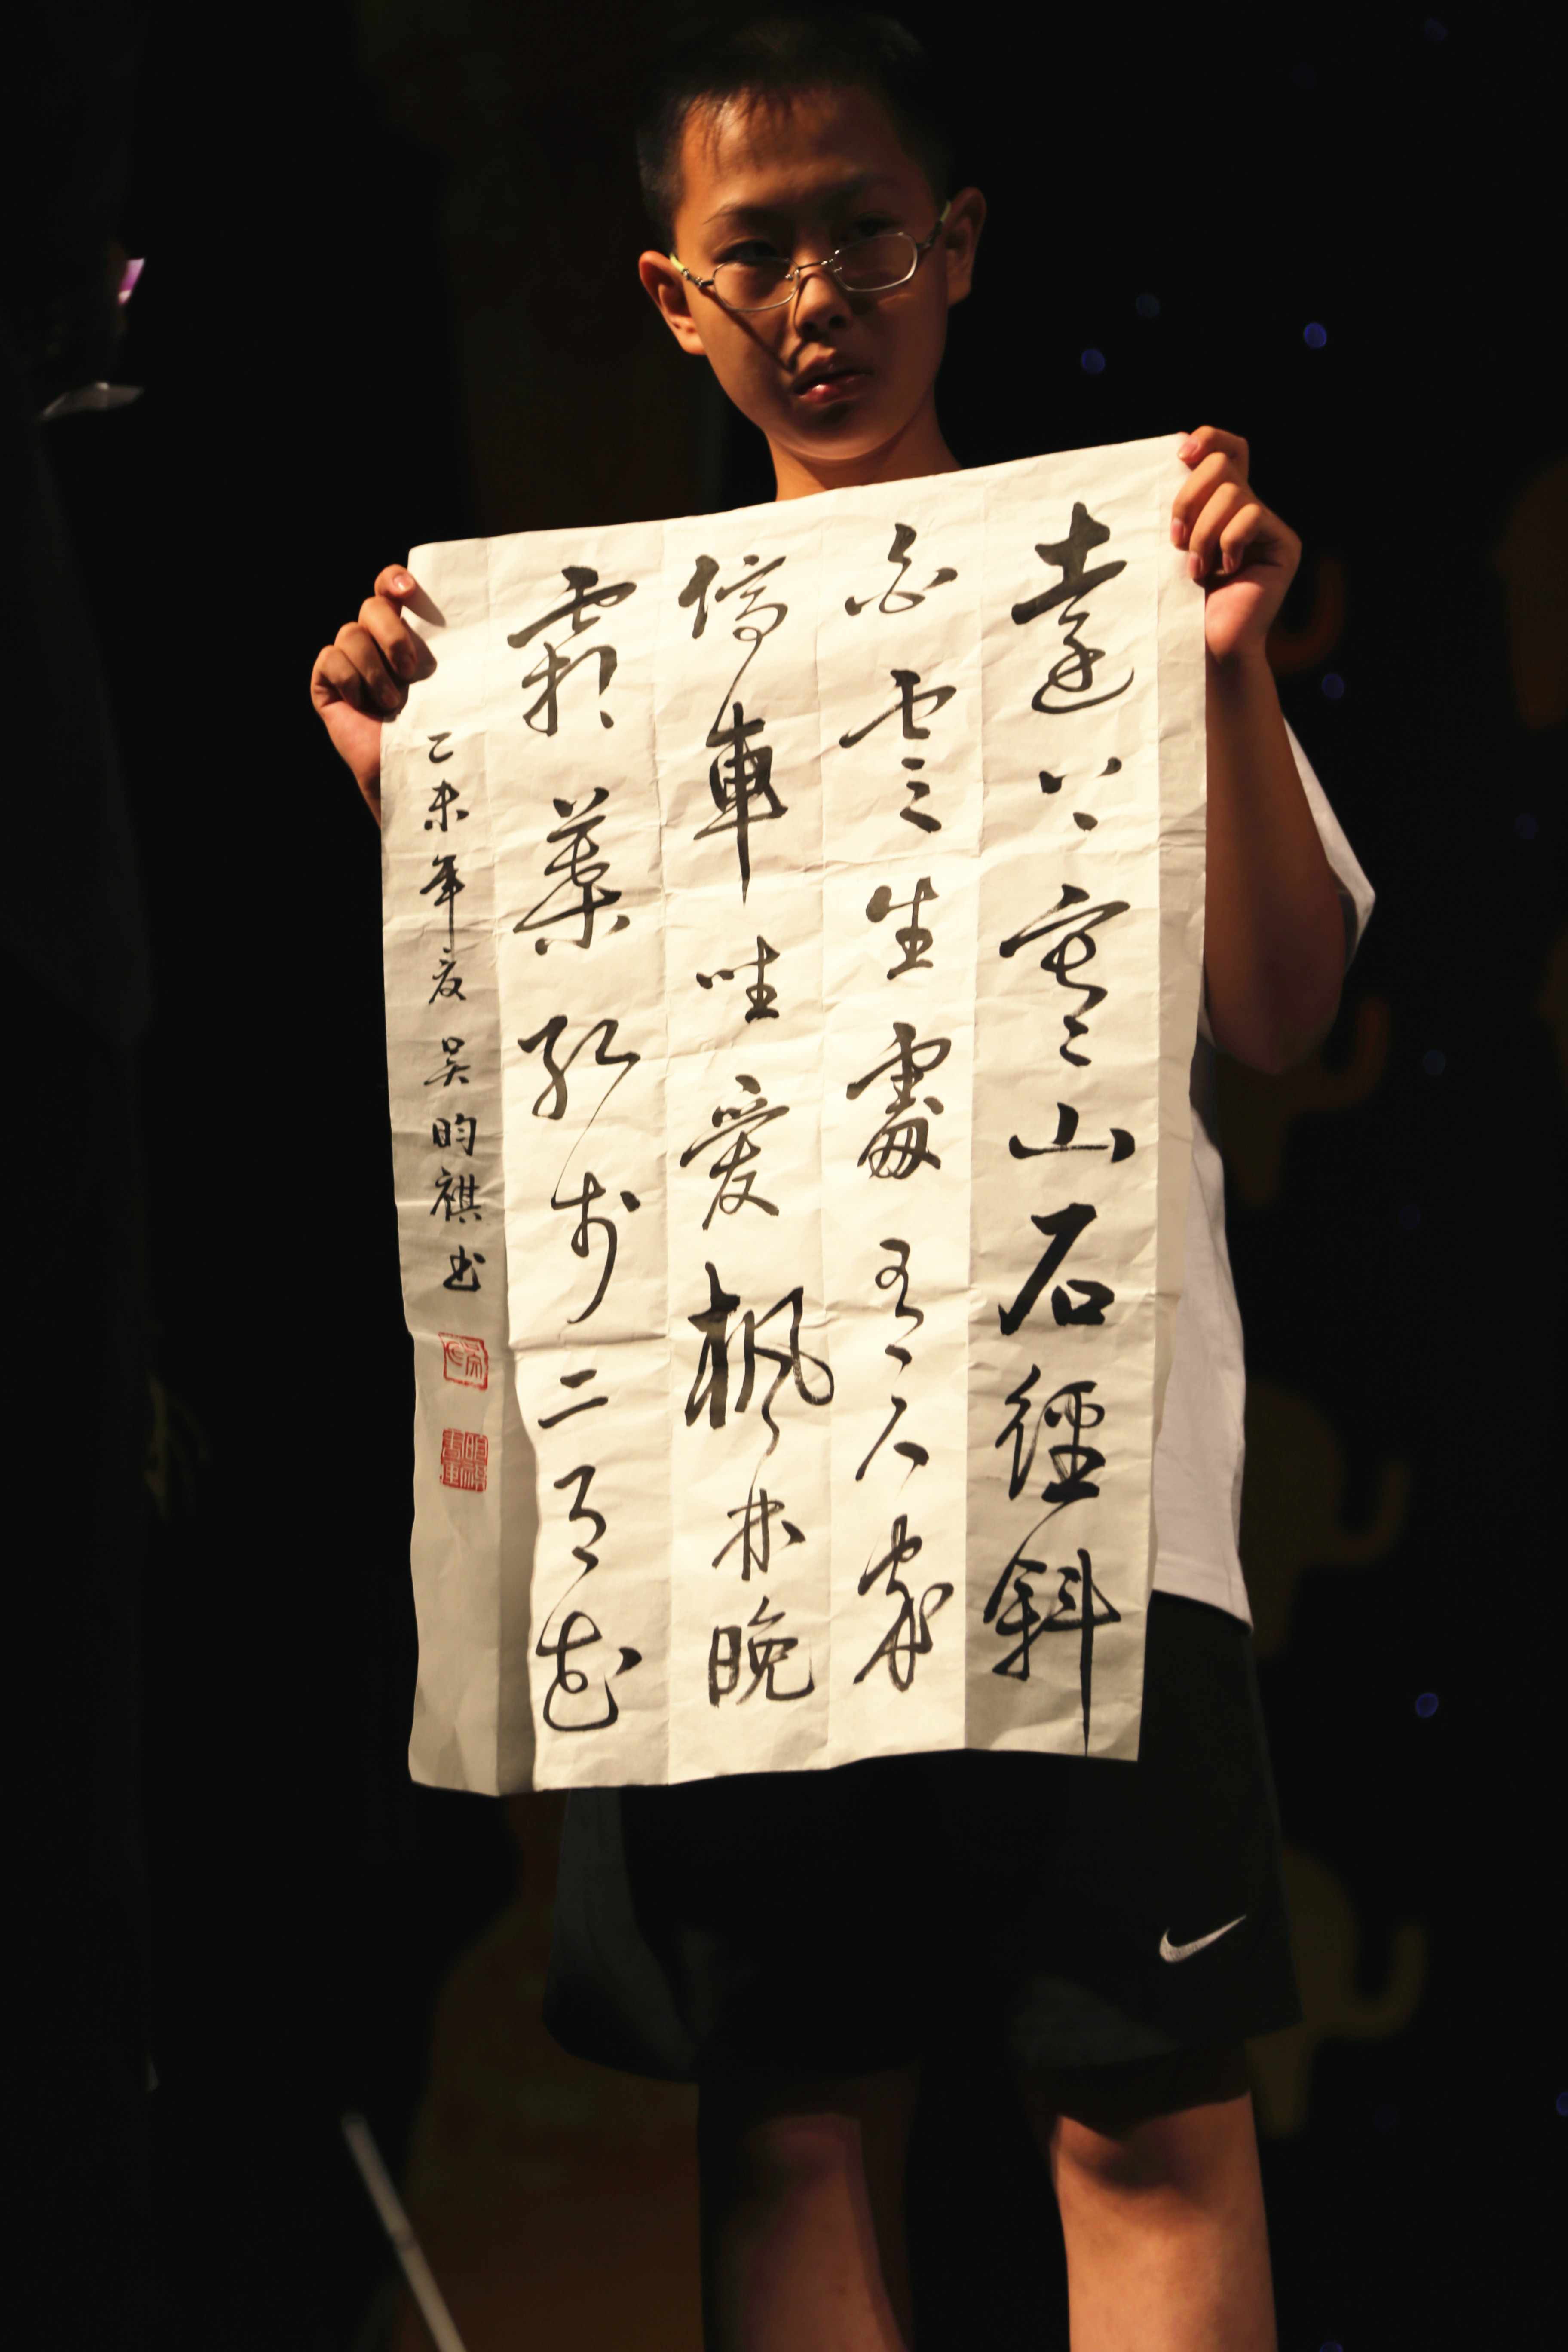 遠上寒山石徑斜
白雲生處有人家
停車坐愛楓林晚
霜葉紅於二月花
乙未年夏吴昀祺书